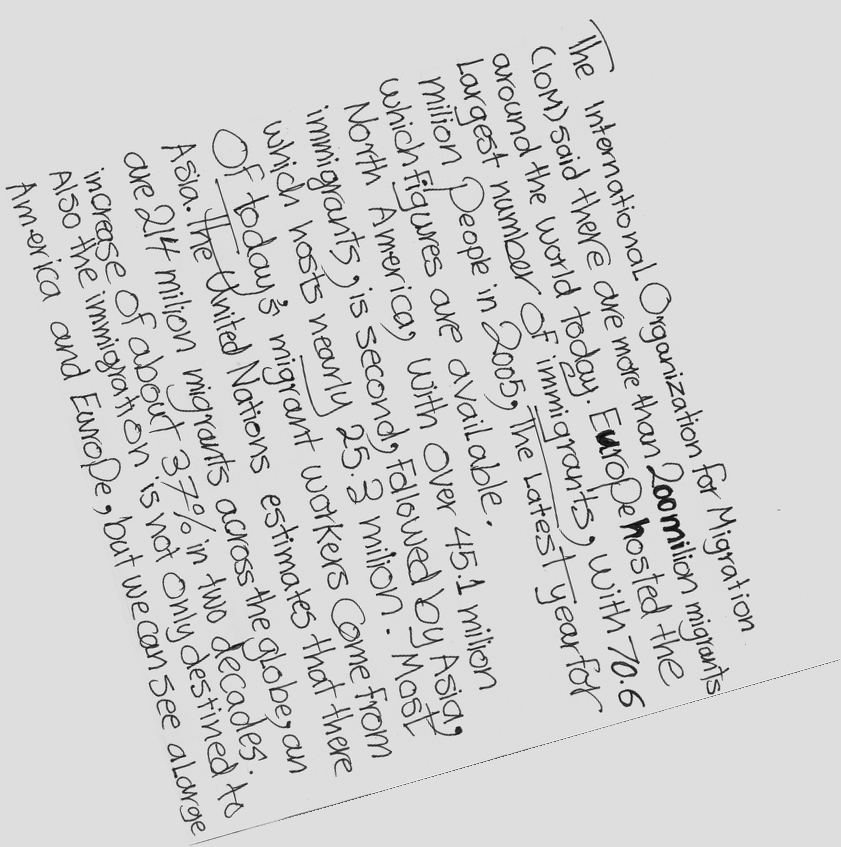 The International Organization for Migration
(IOM) said there are more than 200 milion migrants
around the world today. Europe hosted the
Largest number of immigrants, with 70.6
milion people in 2005, the Latest year for
which figures are available.
North America, with over 45.1 milion
immigrants, is second, followed by Asia,
which hosts nearly 25.3 milion. Most
Of today's migrant workers come from
Asia. The United Nations estimates that there
are 214 milion migrants across the globe, an
increase of about 37% in two decades.
Also the immigration is not only destined to
America and Europe, but we can see a Large